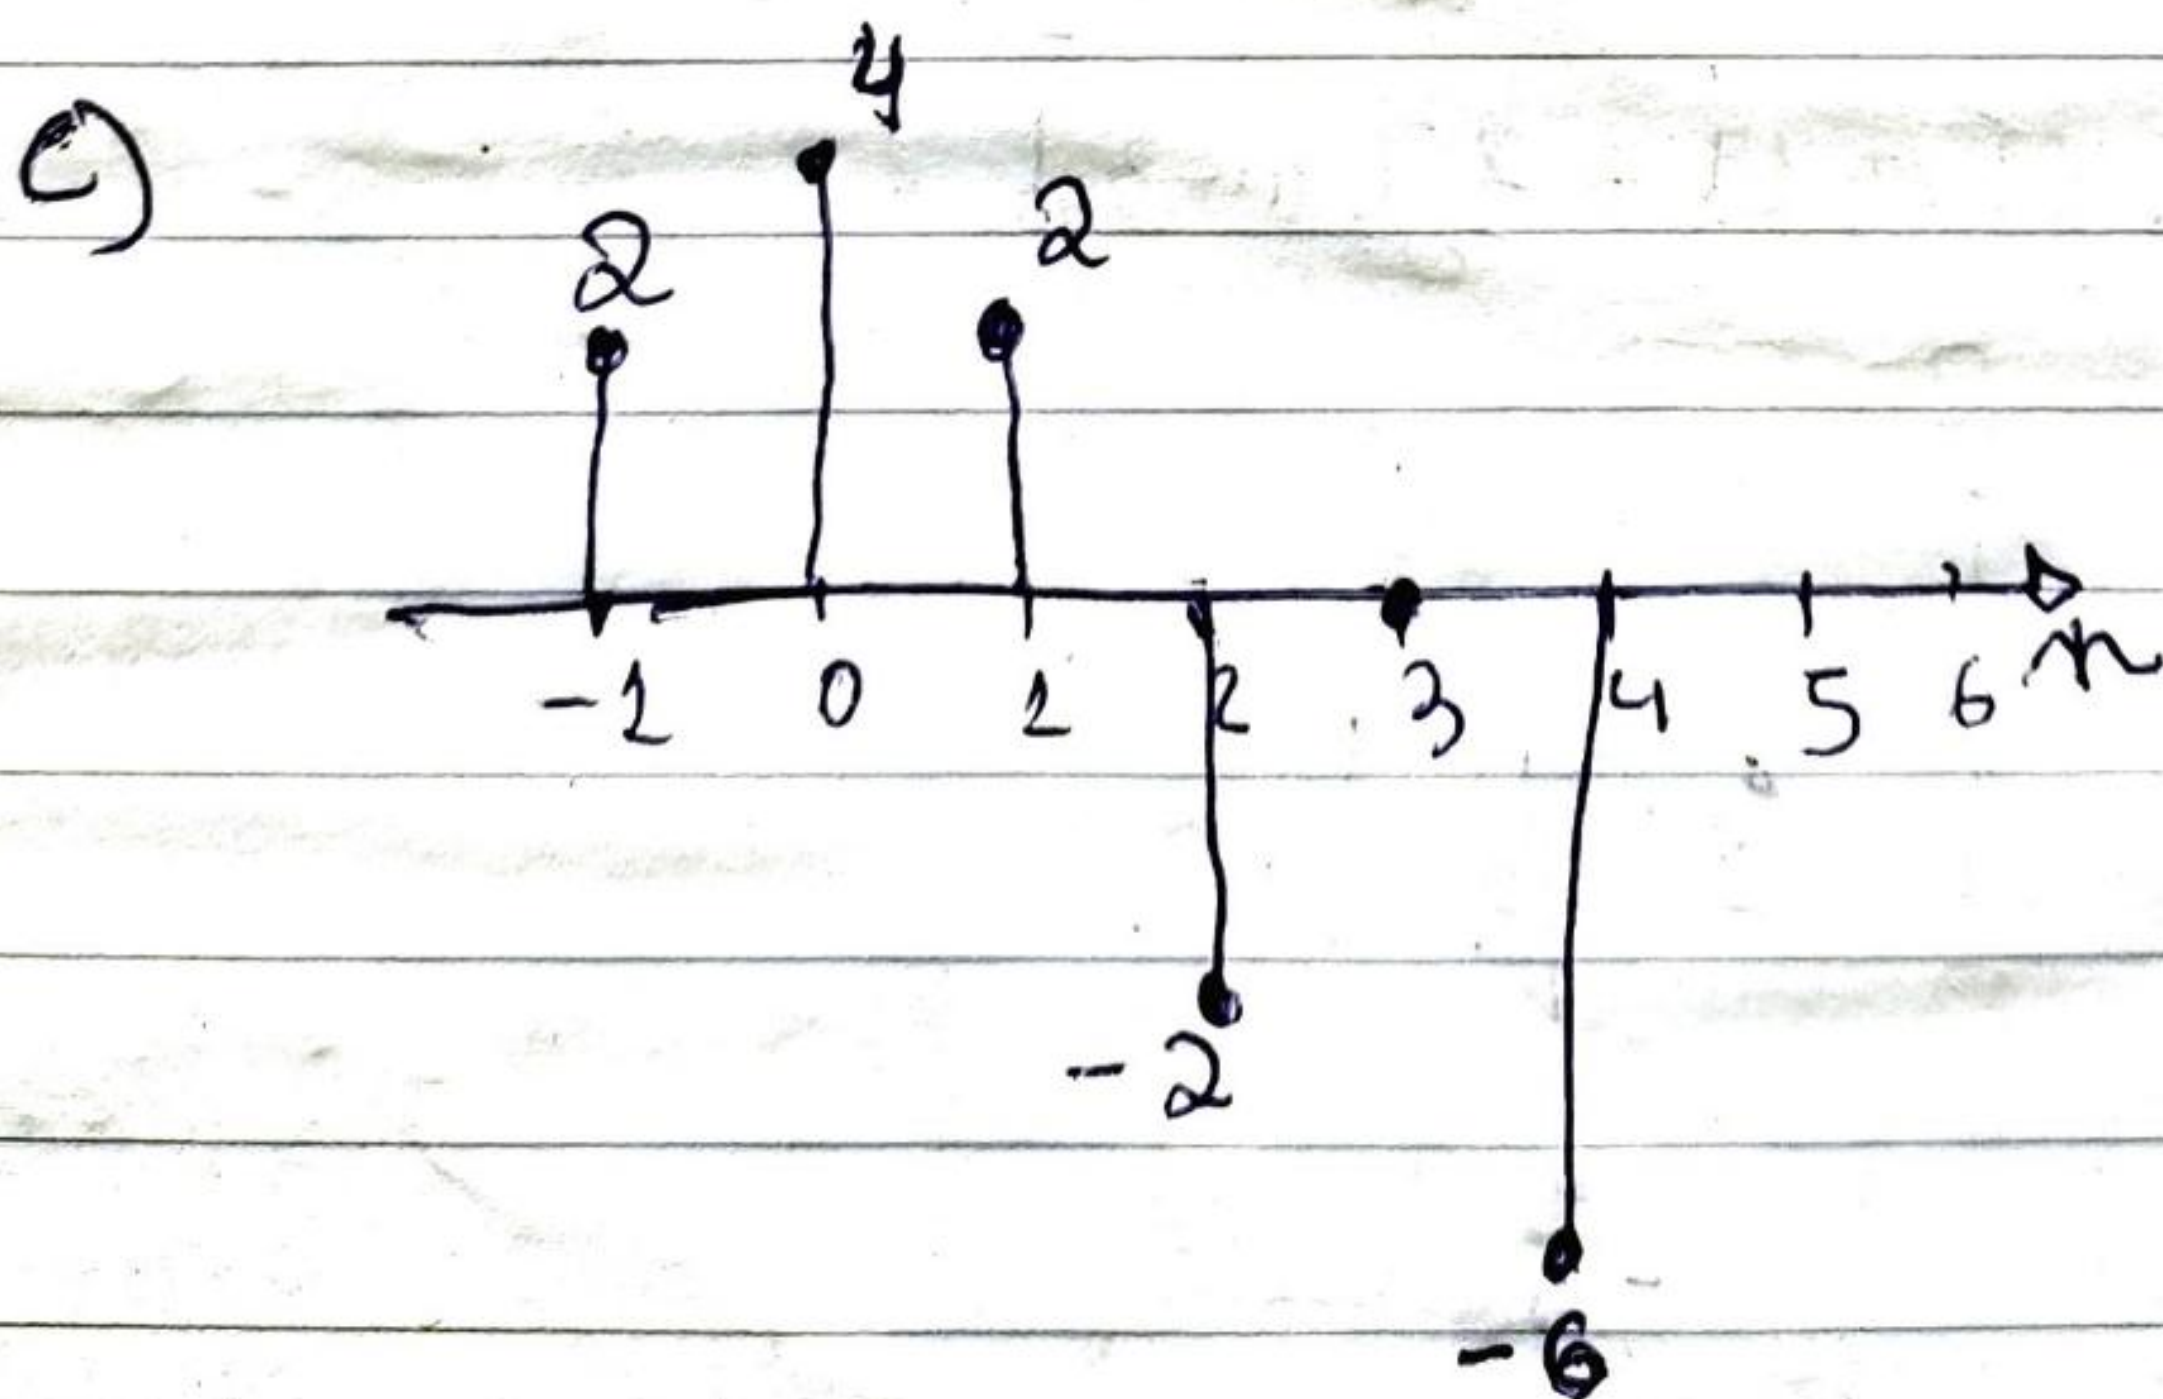 c)
4
2
2
-1 0 1 2 3 4 5 6 n
-2
-6